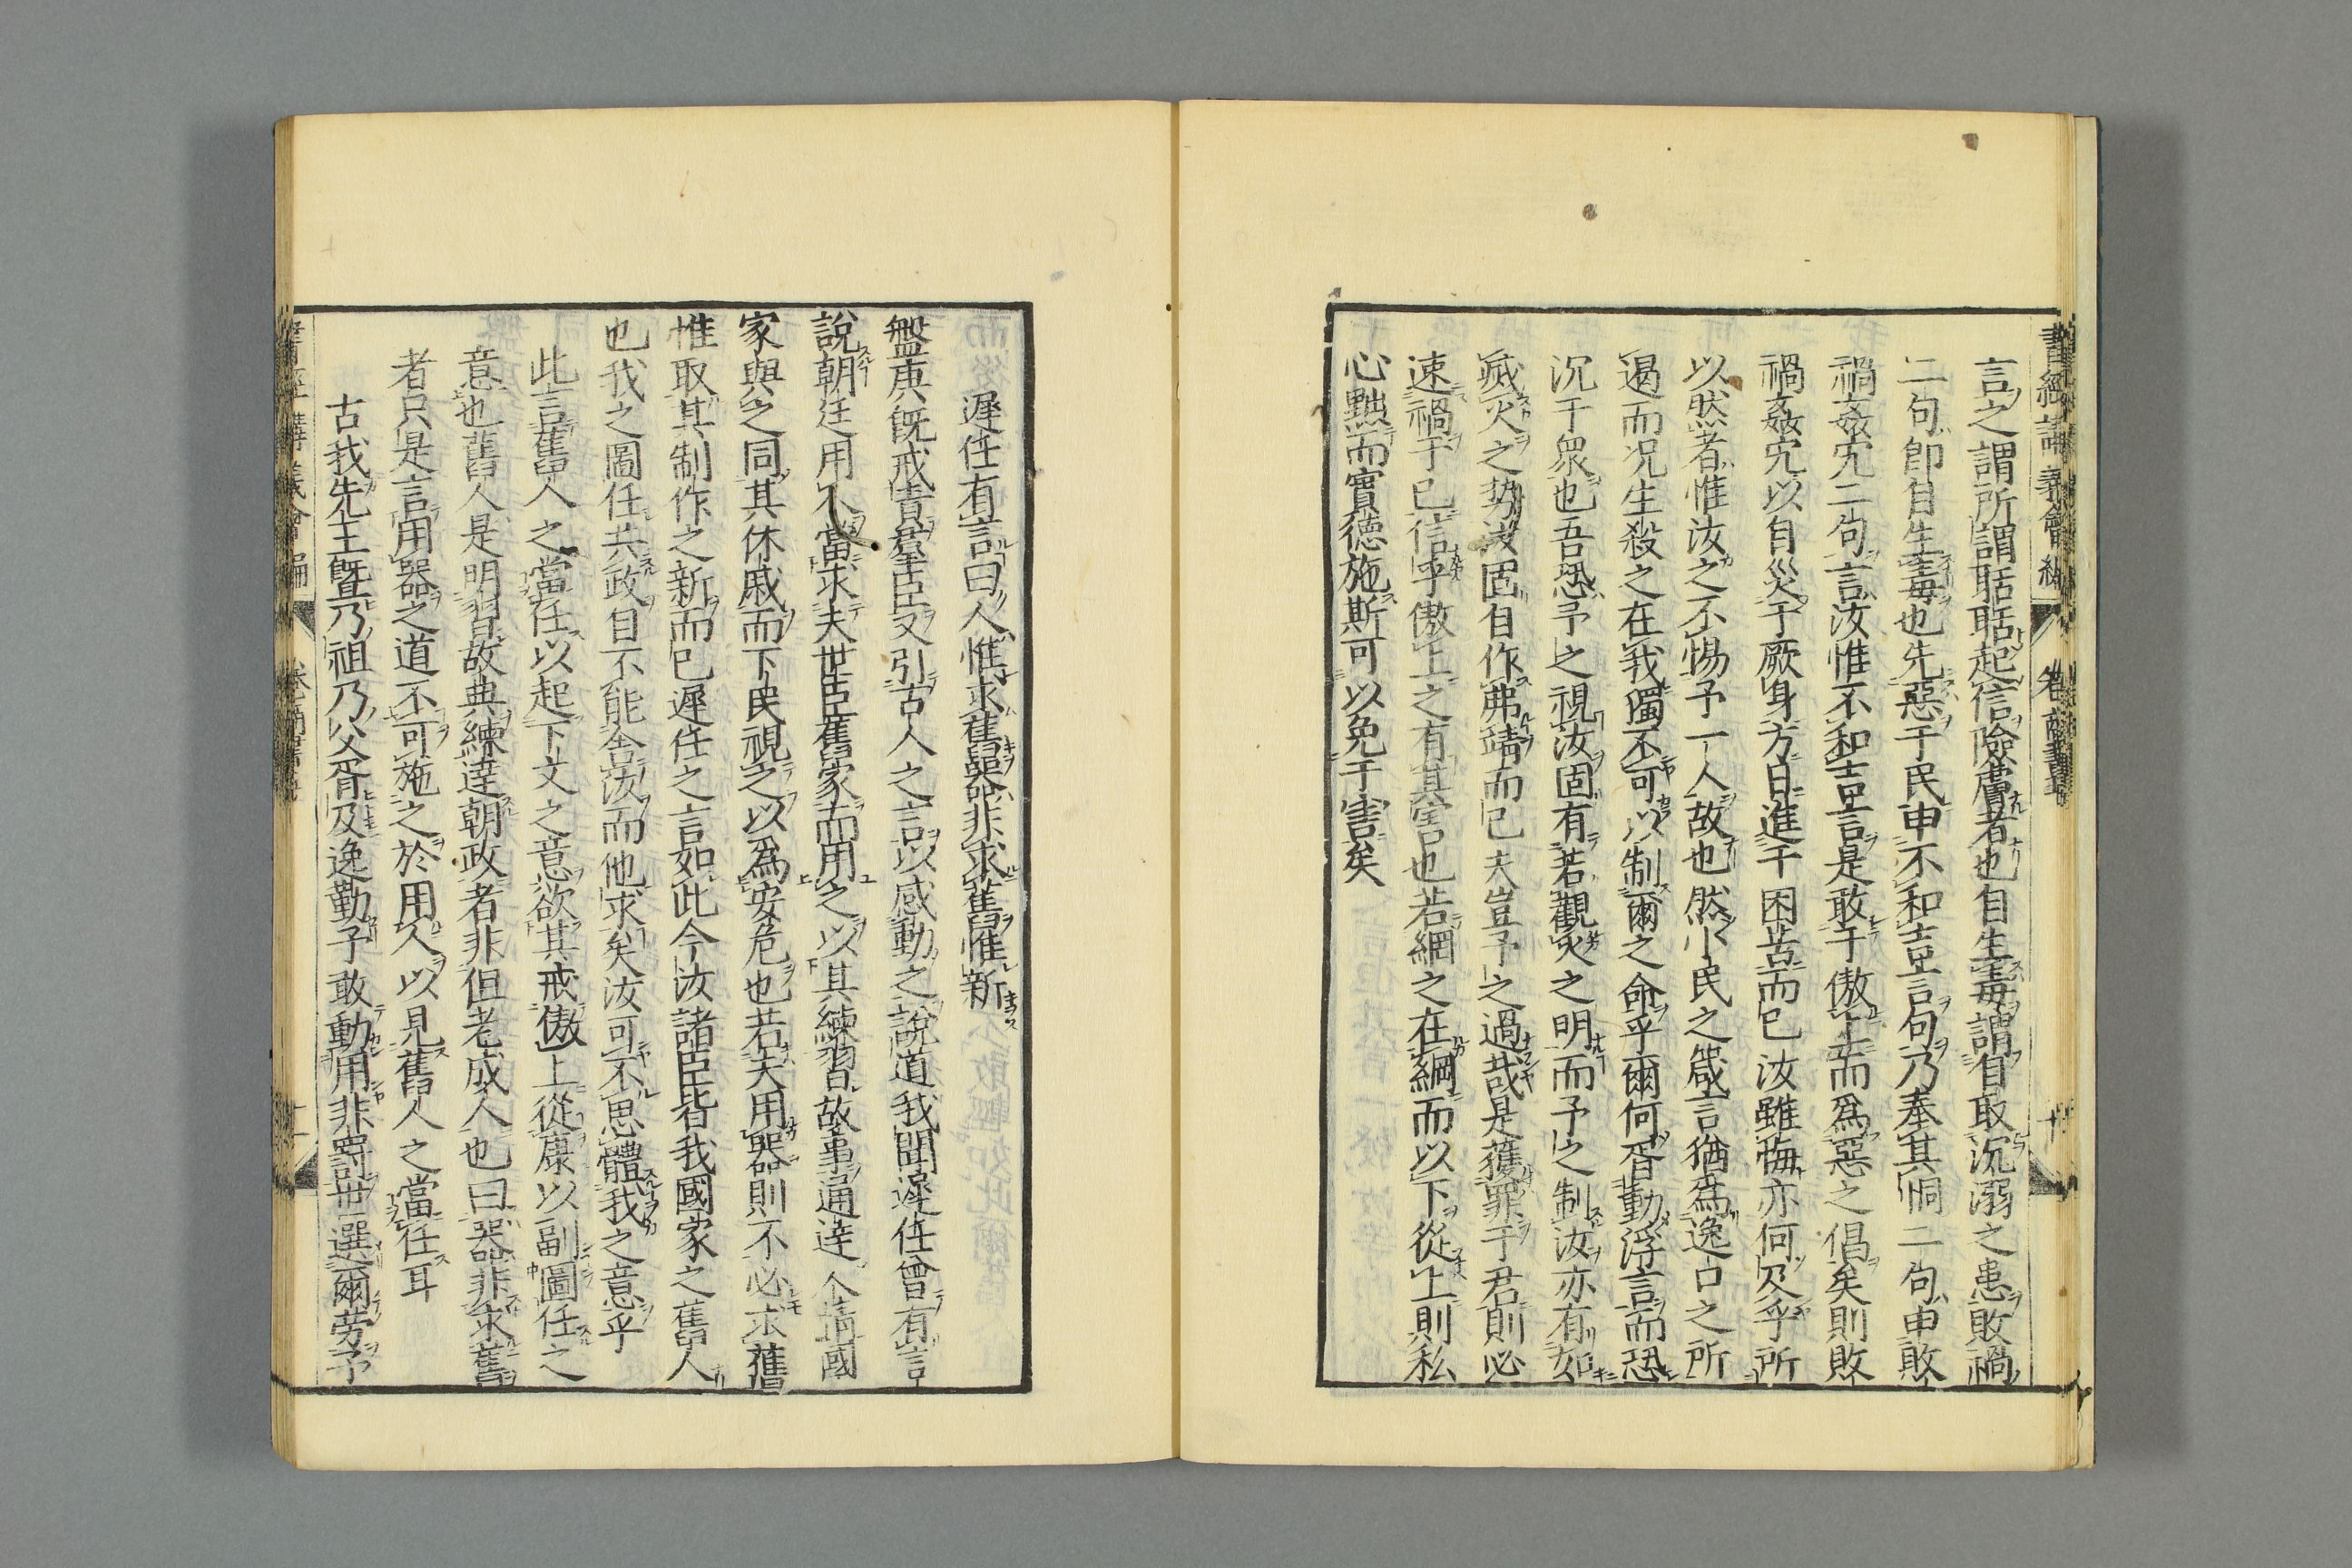 書經講義會編 卷 商書 十
言之謂所謂聒聒起信險膚者也自生毒謂自取沉溺之患敗禍
二句卽自生毒也先惡于民申不和吉言句乃奉其恫二句申敗
禍姦宄二句言汝惟不和吉言是敢于傲上而爲惡之倡矣則敗
禍姦宄以自災于厥身方日進于困苦而已汝雖悔亦何及乎所
以然者惟汝之不惕予一人故也然小民之箴言猶爲逸口之所
遏而况生殺之在我獨不可以制爾之命乎爾何胥動浮言而恐
沉于衆也吾恐予之視汝固有若觀火之明而予之制汝亦有如
滅火之勢汝固自作弗靖而已夫豈予之過哉是獲罪于君則必
速禍于已信乎傲上之有其害也若網之在綱而以下從上則私
心黜而實德施斯可以免于害矣
遲任有言曰人惟求舊器非求舊惟新
盤庚旣戒責羣臣又引古人之言以感動之說道我聞遲任曾有言
說朝廷用人當求夫世臣舊家而用之以其練習故事通達人情國
家與之同其休戚而下民視之以爲安危也若夫用器則不必求舊
惟取其制作之新而已遲任之言如此今汝諸臣皆我國家之舊人
也我之圖任共政自不能舍汝而他求矣汝可不思體我之意乎
此言舊人之當任以起下文之意欲其戒傲上從康以副圖任之
意也舊人是明習故典練達朝政者非但老成人也曰器非求舊
者只是言用器之道不可施之於用人以見舊人之當任耳
古我先王暨乃祖乃父胥及逸勤予敢動用非罰世選爾勞予
書經講義會編 卷 商書 十一